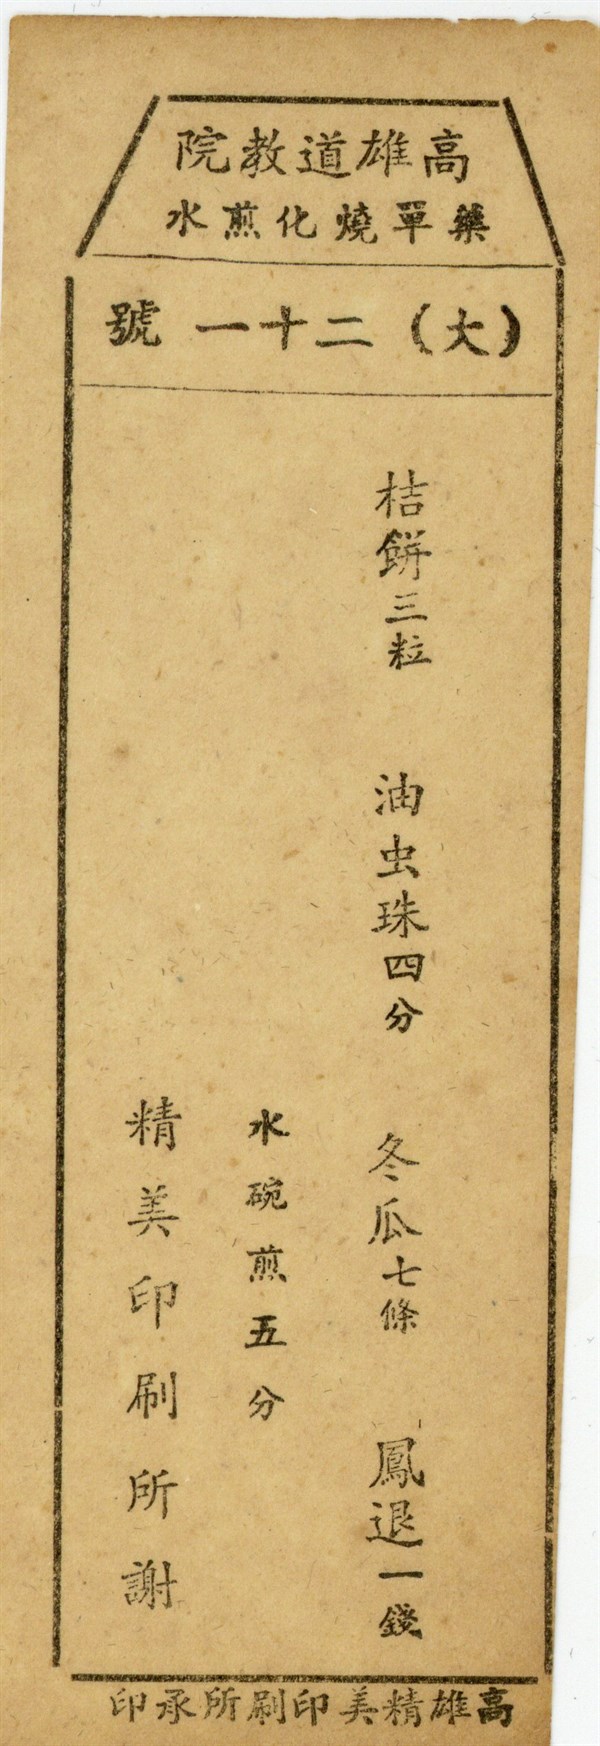 高雄道教院
藥單燒化煎水
（大）二十一號
桔餅三粒　油虫珠四分　冬瓜七條　鳳退一錢
水碗煎五分
精美印刷所謝
高雄精美印刷所承印